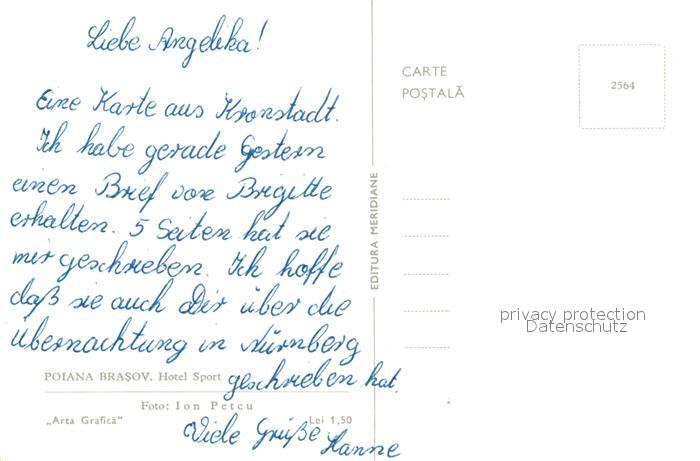 Liebe Angelika!
Eine Karte aus Kronstadt.
Ich habe gerade Gestern
einen Brief von Brigitte
erhalten. 5 Seiten hat sie
mir geschrieben. Ich hoffe
daß sie auch Dir über die
Übernachtung in Nürnberg
geschrieben hat.
Viele Grüße Hanne
POIANA BRAȘOV. Hotel Sport
Foto: Ion Petcu
„Arta Grafică“ Lei 1,50
EDITURA MERIDIANE
CARTE
POȘTALĂ
2564
privacy protection
Datenschutz